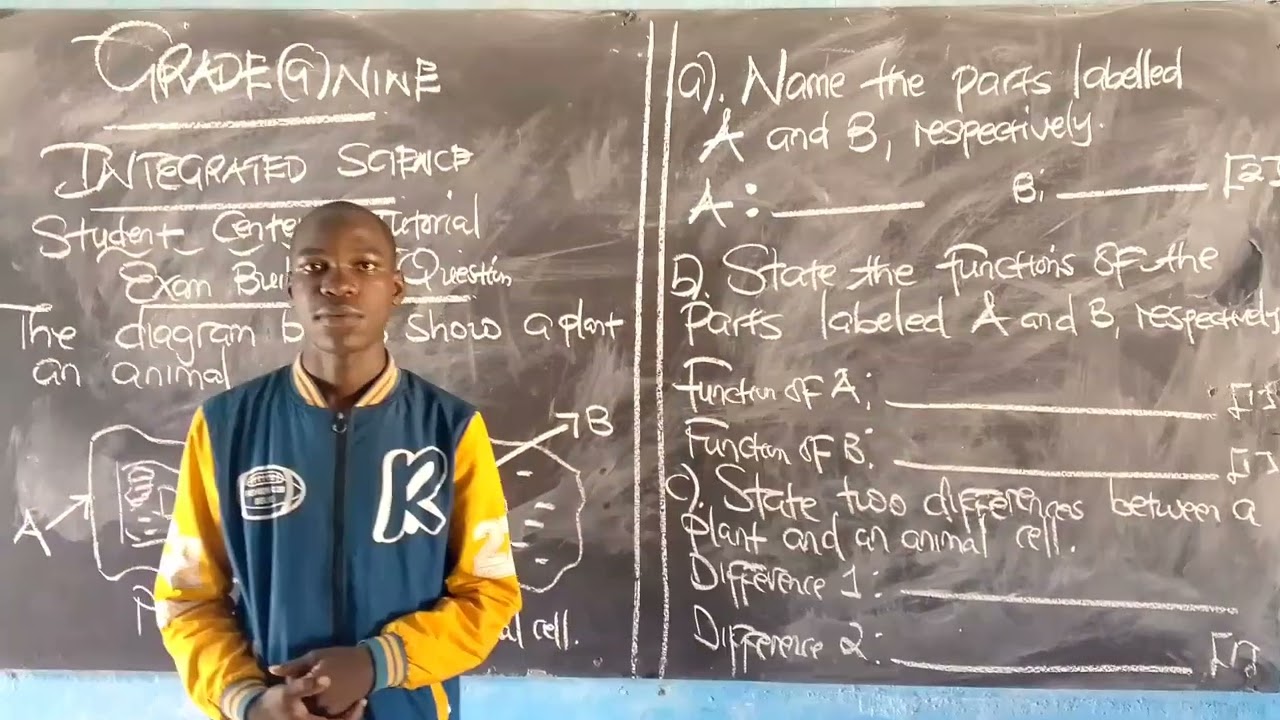 GRADE (9) NINE
INTEGRATED SCIENCE
Student Tutorial
Exam Question
The diagram show a plant
an animal
A
B
cell.
R
2
a). Name the parts labelled
A and B, respectively.
A: B: [2]
b). State the functions of the
parts labeled A and B, respectively
Function of A: [1]
Function of B: [1]
c). State two differences between a
plant and an animal cell.
Difference 1:
Difference 2: